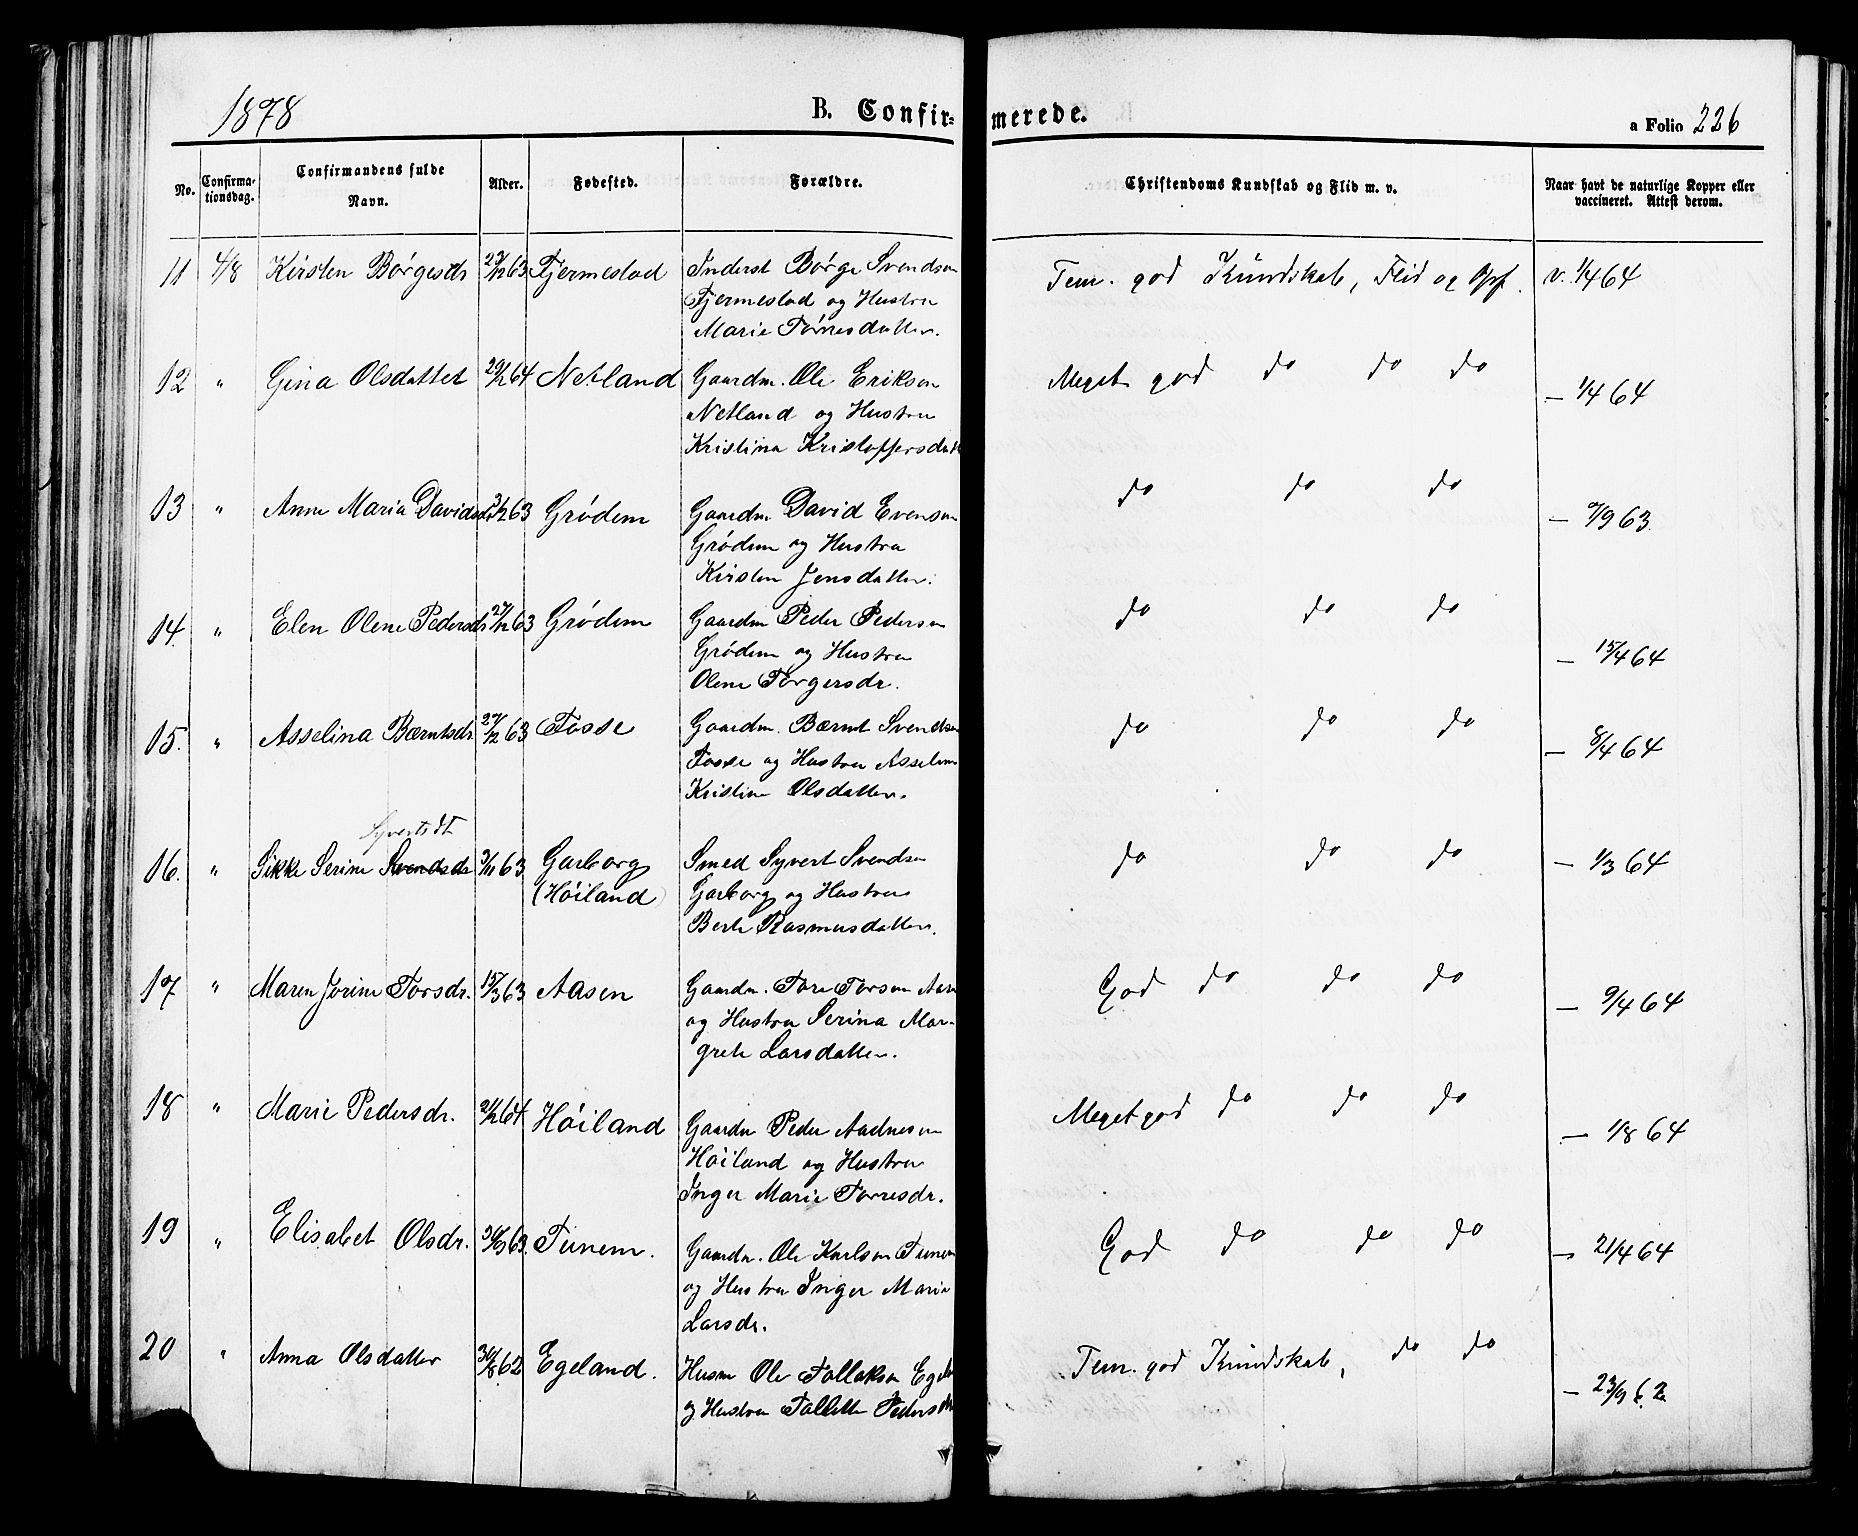 1878
B. Confir- merede.
a Folio 226
No.
Confirma-
tionsdag.
Confirmandens fulde
Navn.
Alder.
Fødested.
Forældre.
Christendoms Kundskab og Flid m. v.
Naar havt de naturlige Kopper eller
vaccineret. Attest derom.
11 4/8 Kirsten Børgesdr 27/12 63 Fjermestad Inderst Børge Svendsen Tem. god Kundskab, Flid og Opf. v. 1/4 64
Fjermestad og Hustru
Marie Tørresdatter.
12 " Gina Olsdatter 20/2 64 Netland Gaardm. Ole Erikson Meget god do do do — 1/4 64
Netland og Hustru
Kristina Kristoffersdatt
13 " Anne Maria Davidsdr 63 Grødem Gaardm David Evensen do do do — 9/9 63
Grødem og Hustru
Kirsten Jensdatter.
14. " Elen Olene Pedersdr 27/12 63 Grødem Gaardm Peder Pedersen do do do — 15/4 64
Grødem og Hustru
Olene Torgersdr.
15. " Asselina Bærntsdr. 27/12 63 Fosse Gaardm. Bærnt Svendsen do do do — 8/4 64
Fosse og Hustru Asseline
Kristine Olsdatter.
Syvertsdt
16. " Sikke Serine Svendsdr 3/11 63 Garborg Smed Syvert Svendsen do do do — 1/3 64
(Høiland) Garborg og Hustru
Berte Rasmusdatter.
17 " Maren Jorine Torsdr. 15/3 63 Aasen Gaardm. Tore Torsen Aase God do do do — 9/4 64
og Hustru Serina Mar-
grete Larsdatter.
18 " Marie Pedersdr. 21/2 64. Høiland Gaardm Peder Aadnesen Meget god do do do — 1/8 64
Høiland og Hustru
Inger Marie Torresdr.
19 " Elisabet Olsdr. 63. Tunem. Gaardm. Ole Karlsen Tunem God do do do — 21/4 64
og Hustru Inger Marie
Larsdr.
20 " Anna Olsdatter 30/8 62 Egeland. Husm Ole Tollaksen Egel Tem. god Kundskab, do do — 23/9 62
og Hustru Tollette Pedersdr